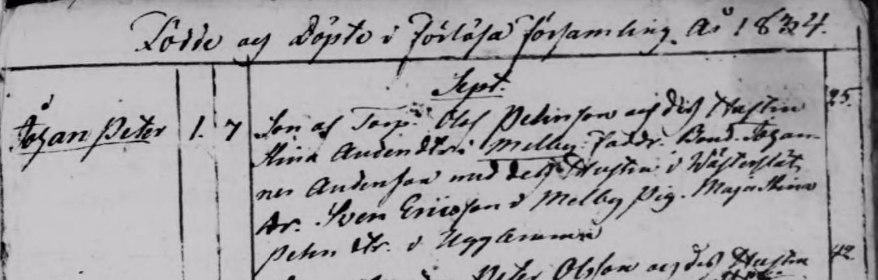 Födde och Döpte i Förlösa Församling År 1834.
Sept.
Johan Peter 1. 7 Son af Torp. Olof Petersson och deß Hustru 25.
Stina Andersdtr i Melby. Faddr. Bond. Johan-
nes Andersson med deß Hustru i Wästerslät,
Dr. Sven Ericsson i Melby Pig. Maja Stina
Petersdtr. i Ugglemmen
Peter Olsson och deß Hustru 42.